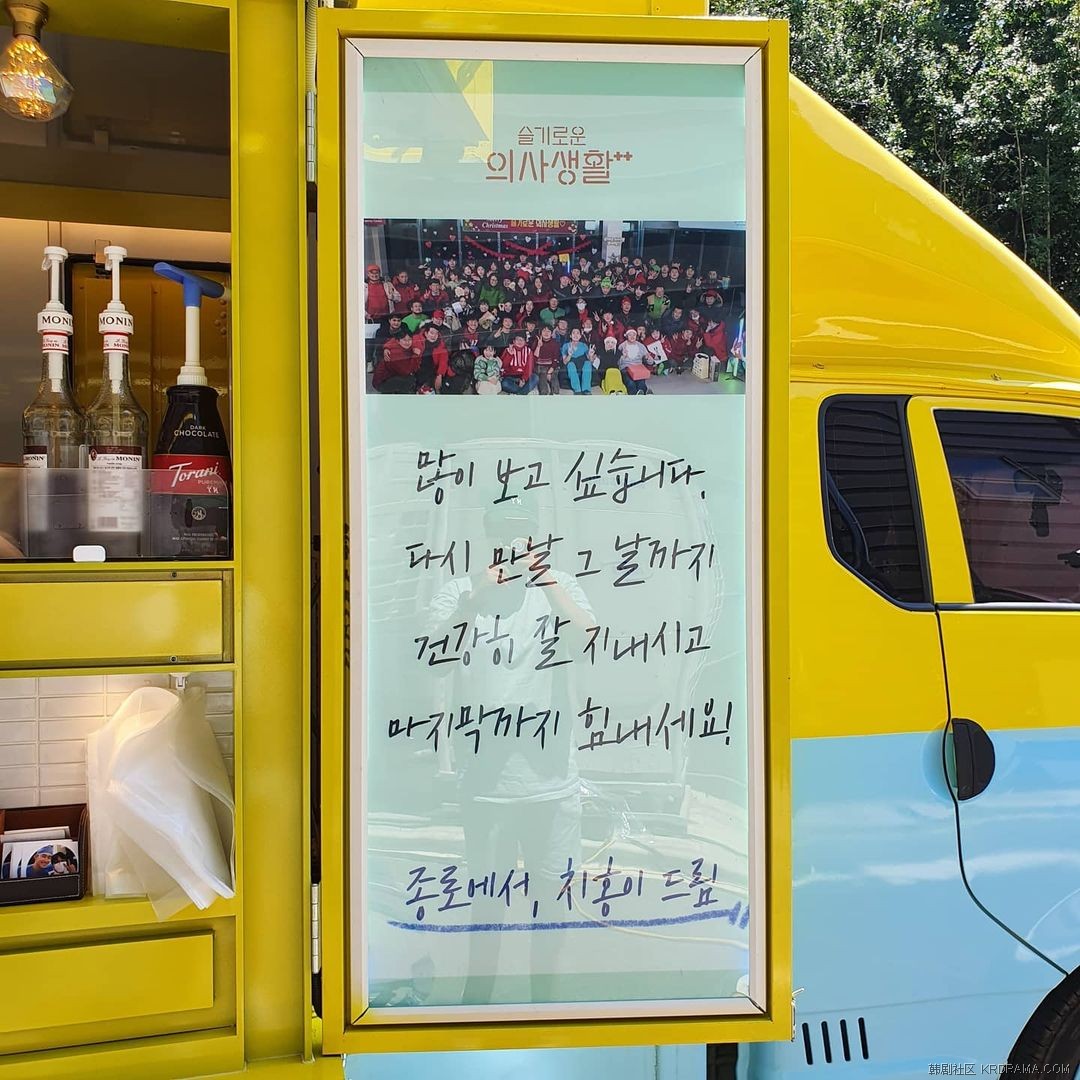 슬기로운
의사생활++
Christmas
많이 보고 싶습니다.
다시 만날 그 날까지
건강히 잘 지내시고
마지막까지 힘내세요!
종로에서, 치홍이 드림
MONIN
MONIN
MONIN
MONIN
DARK
CHOCOLATE
Torani
韩剧社区 KRDRAMA.COM